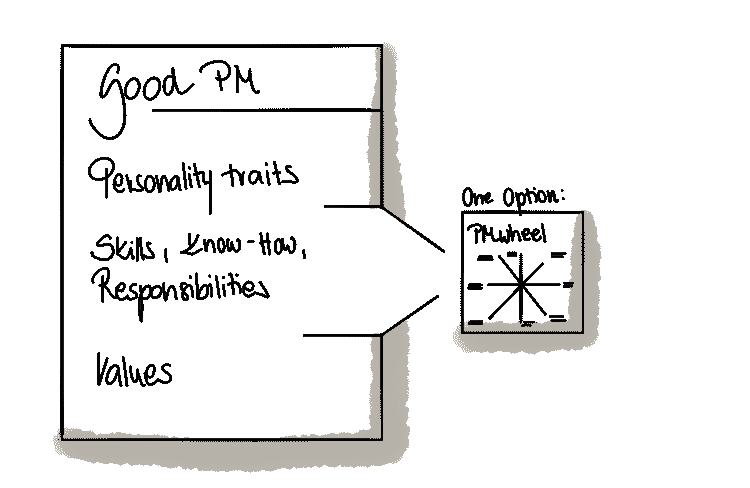 Good PM
Personality traits
Skills, Know-How,
Responsibilities
Values
One Option:
PMwheel